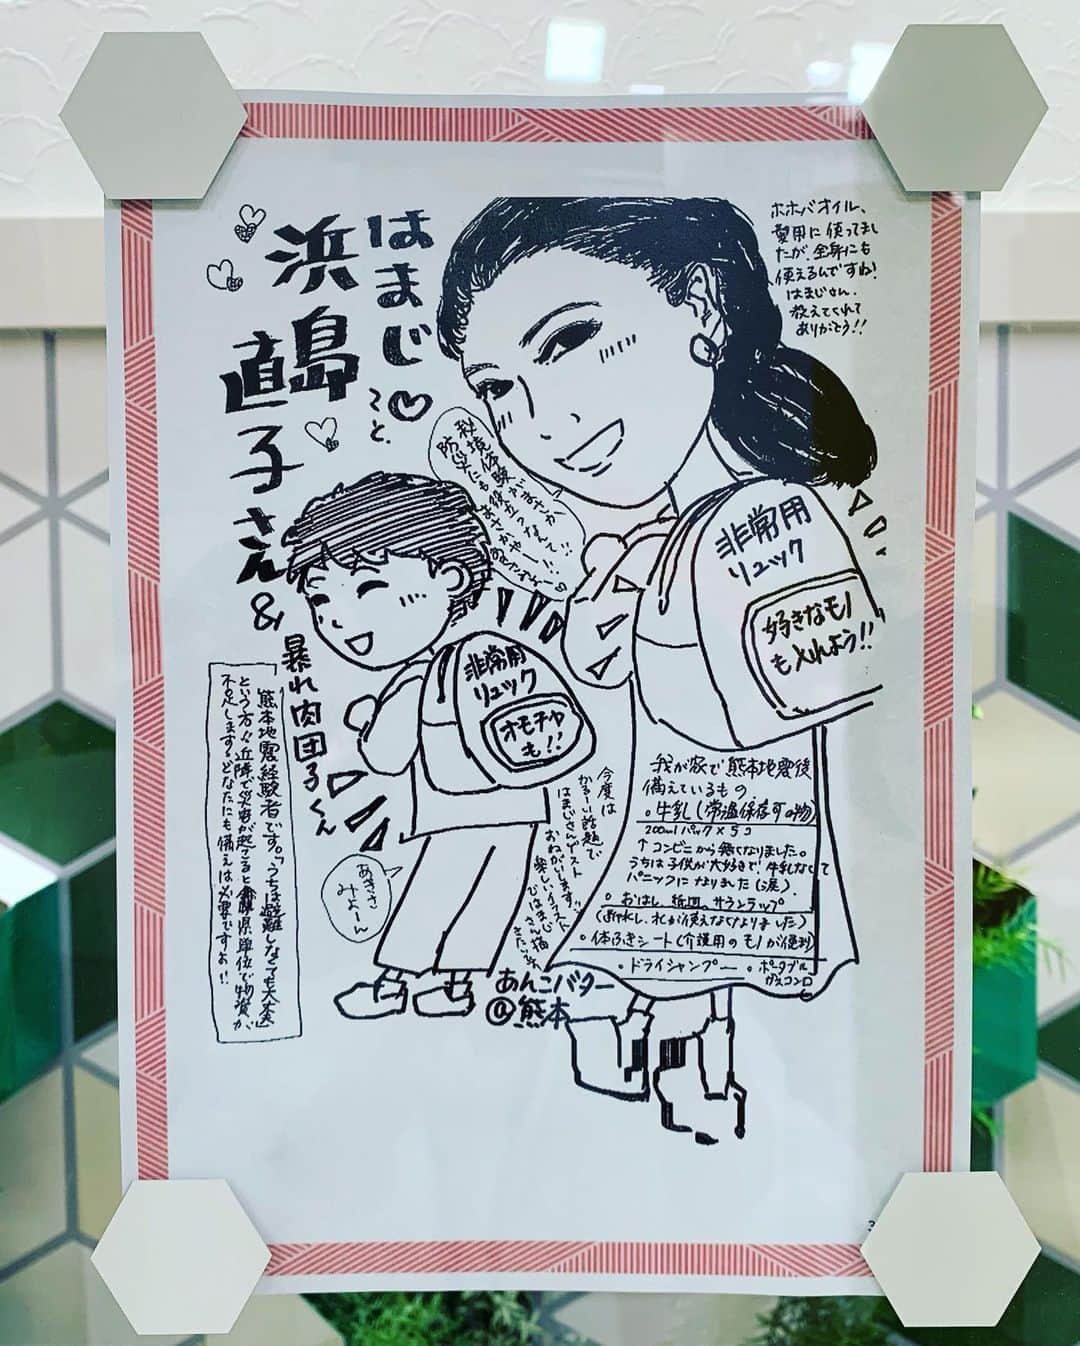 はまじ♡こと、
浜島直子さん&
暴れ肉団子くん
ホホバオイル、
髪用に使ってまし
たが、全身にも
使えるんですね!
はまじさん、
教えてくれて
ありがとう!!
秘境体験がまさか
防災にも役立つなんて!!
まさかやー!!
非常用
リュック
好きなモノ
も入れよう!!
非常用
リュック
オモチャ
も!!
「熊本地震経験者です。「うちは避難しなくても大丈夫」
という方々、近隣で災害が起こると、県単位で物資が
不足します。どなたにも備えは必要ですよ!!
今度は
かるーい話題で
はまじさんゲスト
おねがいします。
楽しいイラスト
我が家で熊本地震後
備えているもの、
・牛乳(常温保存可の物)
200mlパック×5コ
↑コンビニから無くなりました。
うちは子供が大好きで!牛乳なくて
パニックになりました(涙)
・おはし、紙皿、サランラップ
・体ふきシート(介護用のモノが便利)
・ドライシャンプー ・ポータブル
ガスコンロ
あきささ
みよーん
あんこバター
@熊本